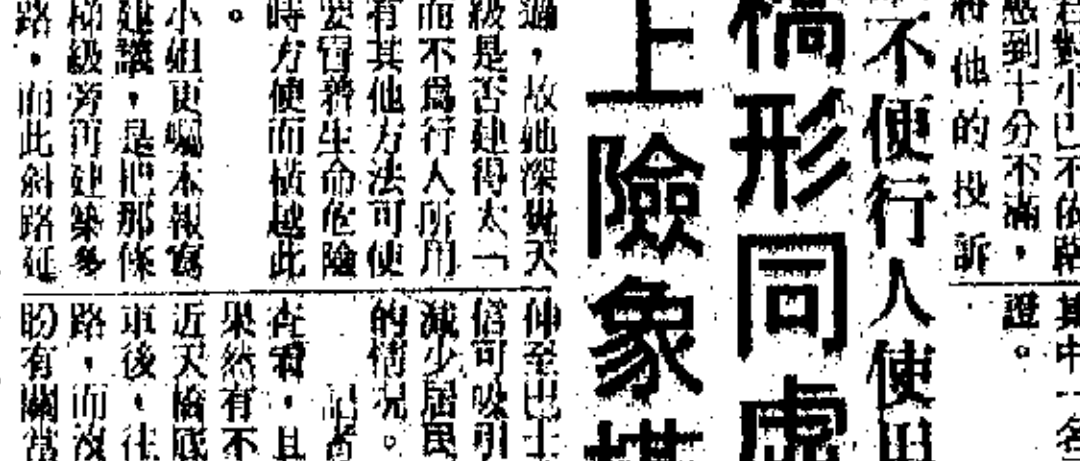 對小巴不依路
感到十分不滿，
將他的投訴
其中一名
證。
不便行人使用
橋形同虛
上險象
過，故她深覺天
級是否建得太「
而不爲行人所用
有其他方法可使
要冒着生命危險
時方便而橫越此
。
小姐更囑本報寫
建議，是把那條
梯級旁再建築多
路，而此斜路延
伸至巴士
信可吸引
減少居民
的情況。
記者
查看，且
果然有不
近天橋底
車後，往
路，而
盼有關當